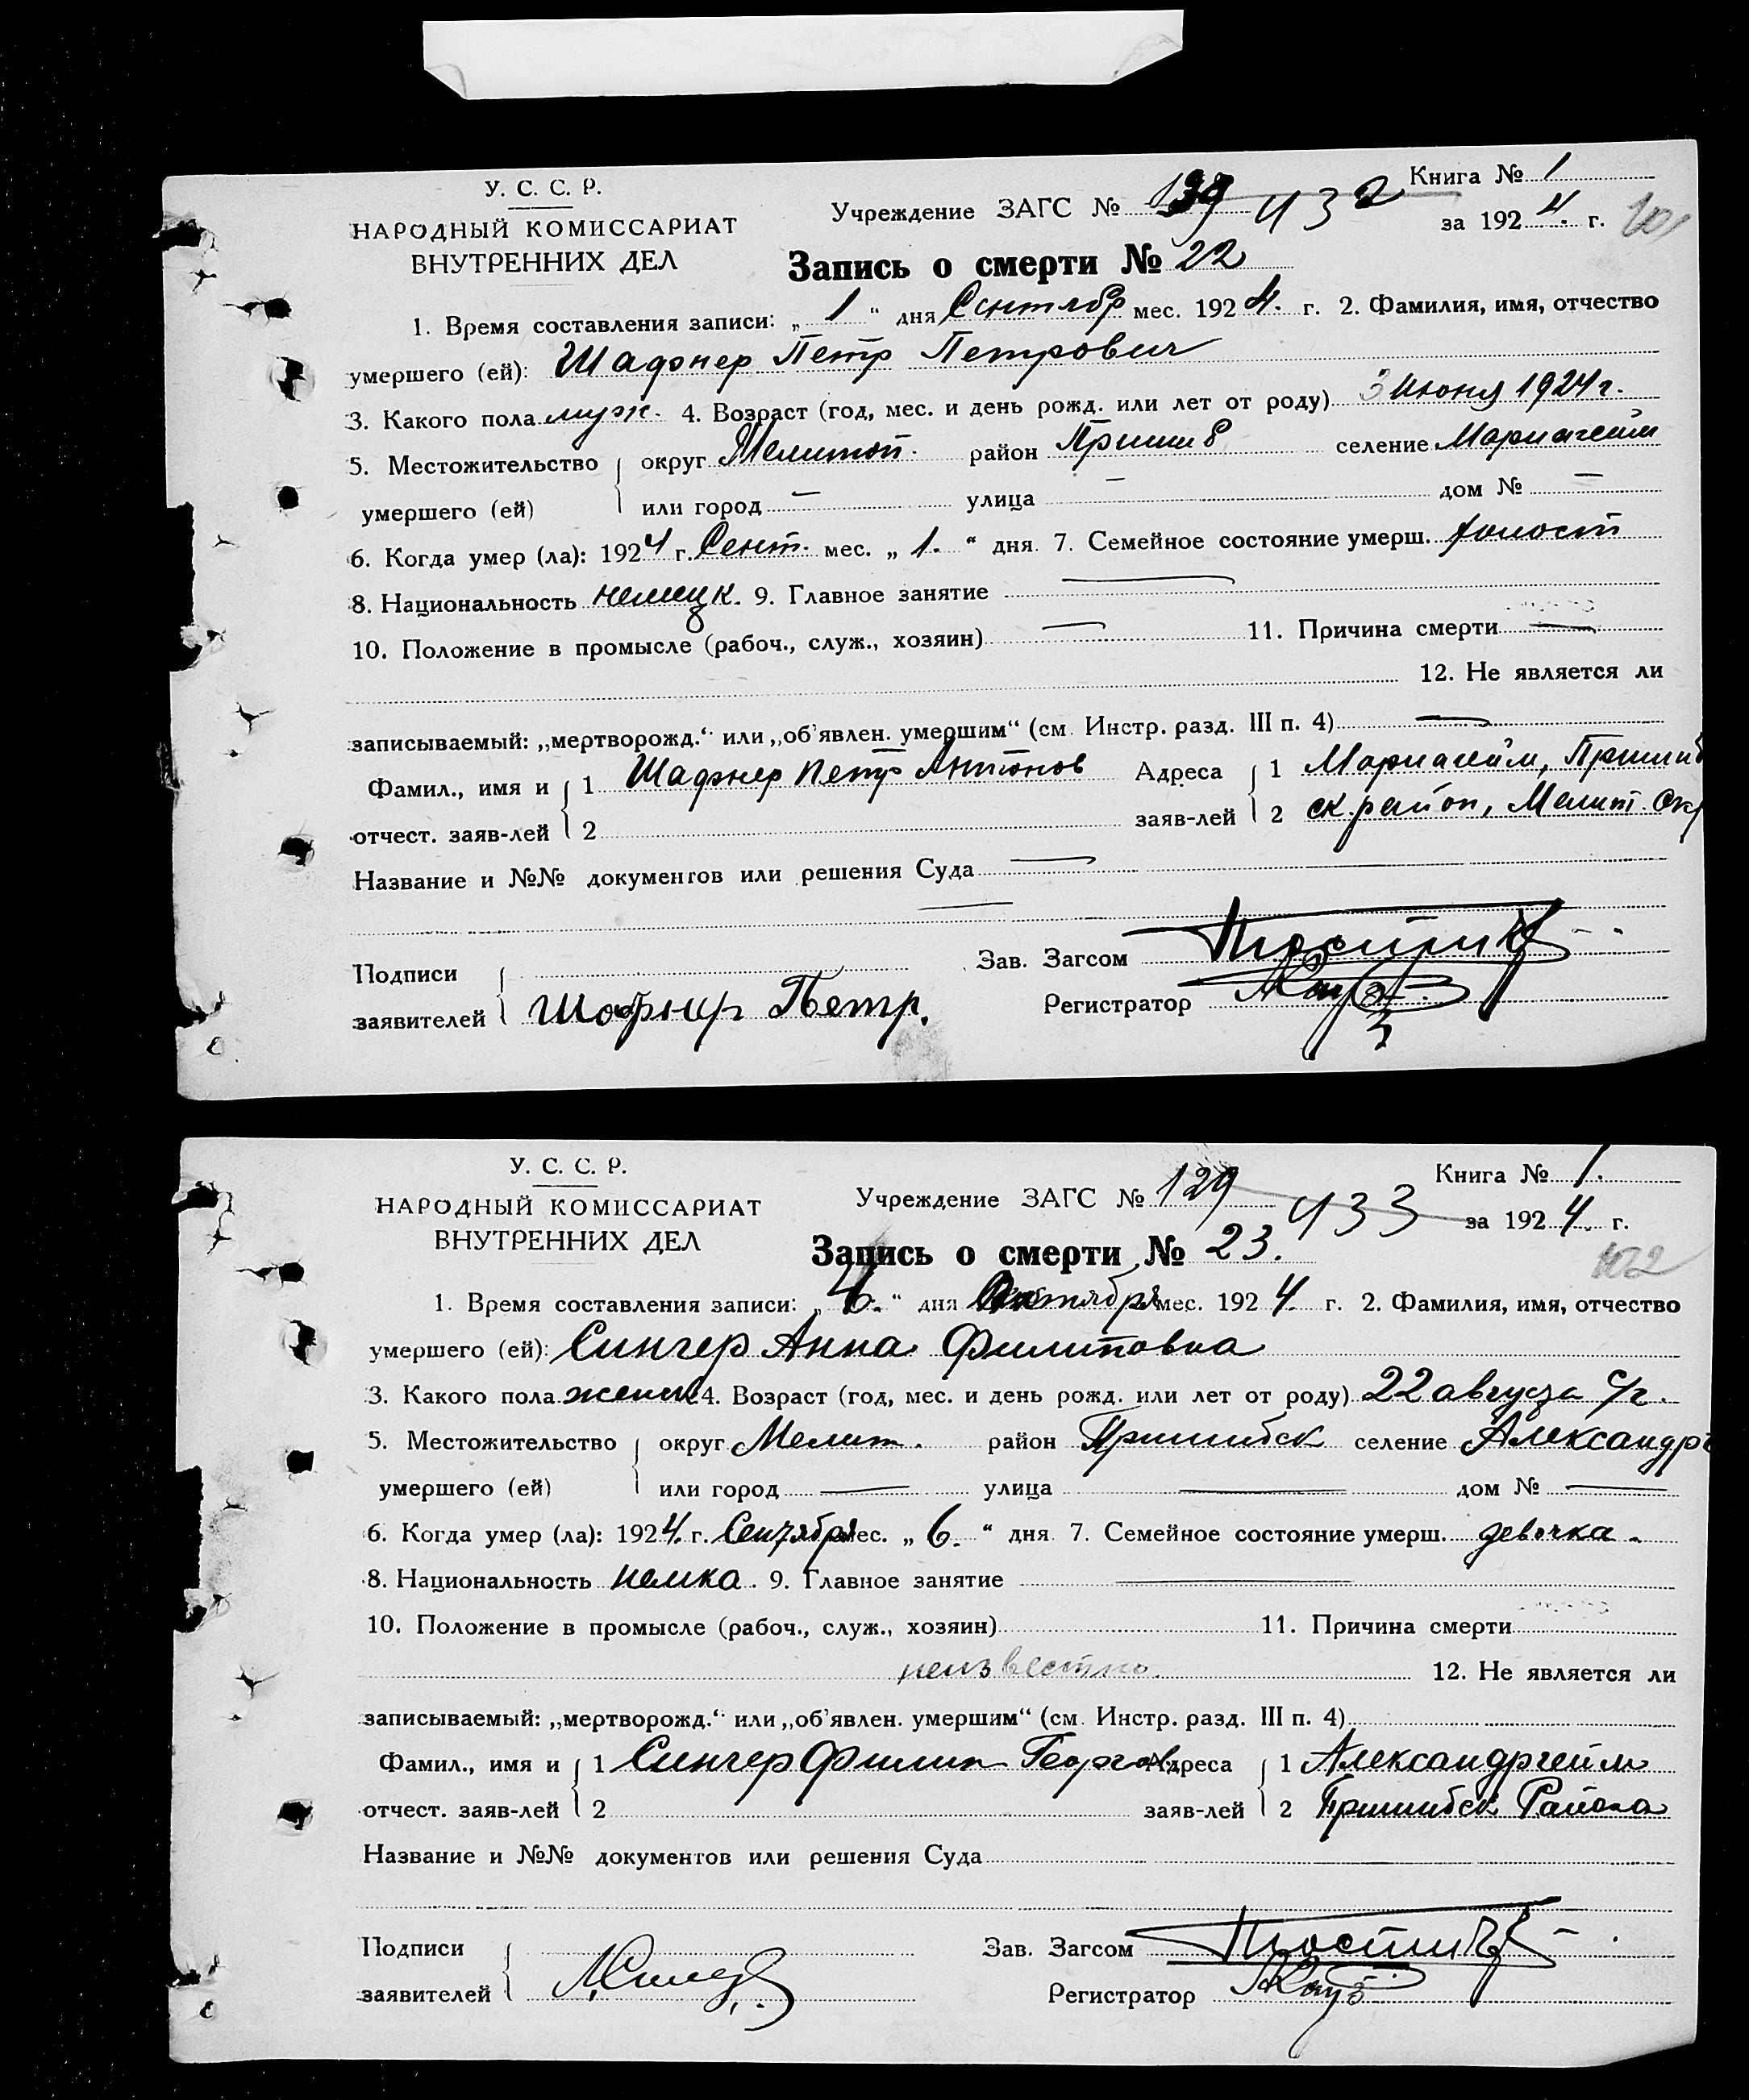 У. С. С. Р.
НАРОДНЫЙ КОМИССАРИАТ
ВНУТРЕННИХ ДЕЛ
Книга № 1
Учреждение ЗАГС № 139 432
за 1924. г.
Запись о смерти № 22
1. Время составления записи: „1“ дня Сентябр мес. 1924. г. 2. Фамилия, имя, отчество
умершего (ей): Шафнер Петр Петрович
3. Какого пола муж. 4. Возраст (год, мес. и день рожд. или лет от роду) 3 июня 1924 г.
5. Местожительство округ Мелитоп. район Пришиб селение Мариагейм
умершего (ей) или город — улица — дом № —
6. Когда умер (ла): 1924 г. Сент. мес. „1.“ дня. 7. Семейное состояние умерш. холост
8. Национальность немецк. 9. Главное занятие —
10. Положение в промысле (рабоч., служ., хозяин) — 11. Причина смерти —
12. Не является ли
записываемый: „мертворожд.“ или „об'явлен. умершим“ (см. Инстр. разд. III п. 4) —
Фамил., имя и 1 Шафнер Петр Антонов Адреса 1 Мариагейм, Пришиб
отчест. заяв-лей 2 заяв-лей 2 ск. район, Мелит. Окр
Название и №№ документов или решения Суда —
—
Подписи Зав. Загсом
заявителей Шафнер Петр. Регистратор
У. С. С. Р.
НАРОДНЫЙ КОМИССАРИАТ
ВНУТРЕННИХ ДЕЛ
Книга № 1.
Учреждение ЗАГС № 129 433
за 1924. г.
Запись о смерти № 23.
102
1. Время составления записи: „6.“ дня Октября мес. 1924. г. 2. Фамилия, имя, отчество
умершего (ей): Сингер Анна Филиповна
3. Какого пола женск 4. Возраст (год, мес. и день рожд. или лет от роду) 22 августа с/г.
5. Местожительство округ Мелит. район Пришибск селение Александрг
умершего (ей) или город — улица — дом № —
6. Когда умер (ла): 1924. г. Сентября мес. „6.“ дня 7. Семейное состояние умерш. девочка.
8. Национальность немка. 9. Главное занятие —
10. Положение в промысле (рабоч., служ., хозяин) 11. Причина смерти
неизвестно. 12. Не является ли
записываемый: „мертворожд.“ или „об'явлен. умершим“ (см. Инстр. разд. III п. 4)
Фамил., имя и 1 Сингер Филип Георгов Адреса 1 Александргейм
отчест. заяв-лей 2 заяв-лей 2 Пришибск Района
Название и №№ документов или решения Суда
Подписи Зав. Загсом
заявителей Регистратор